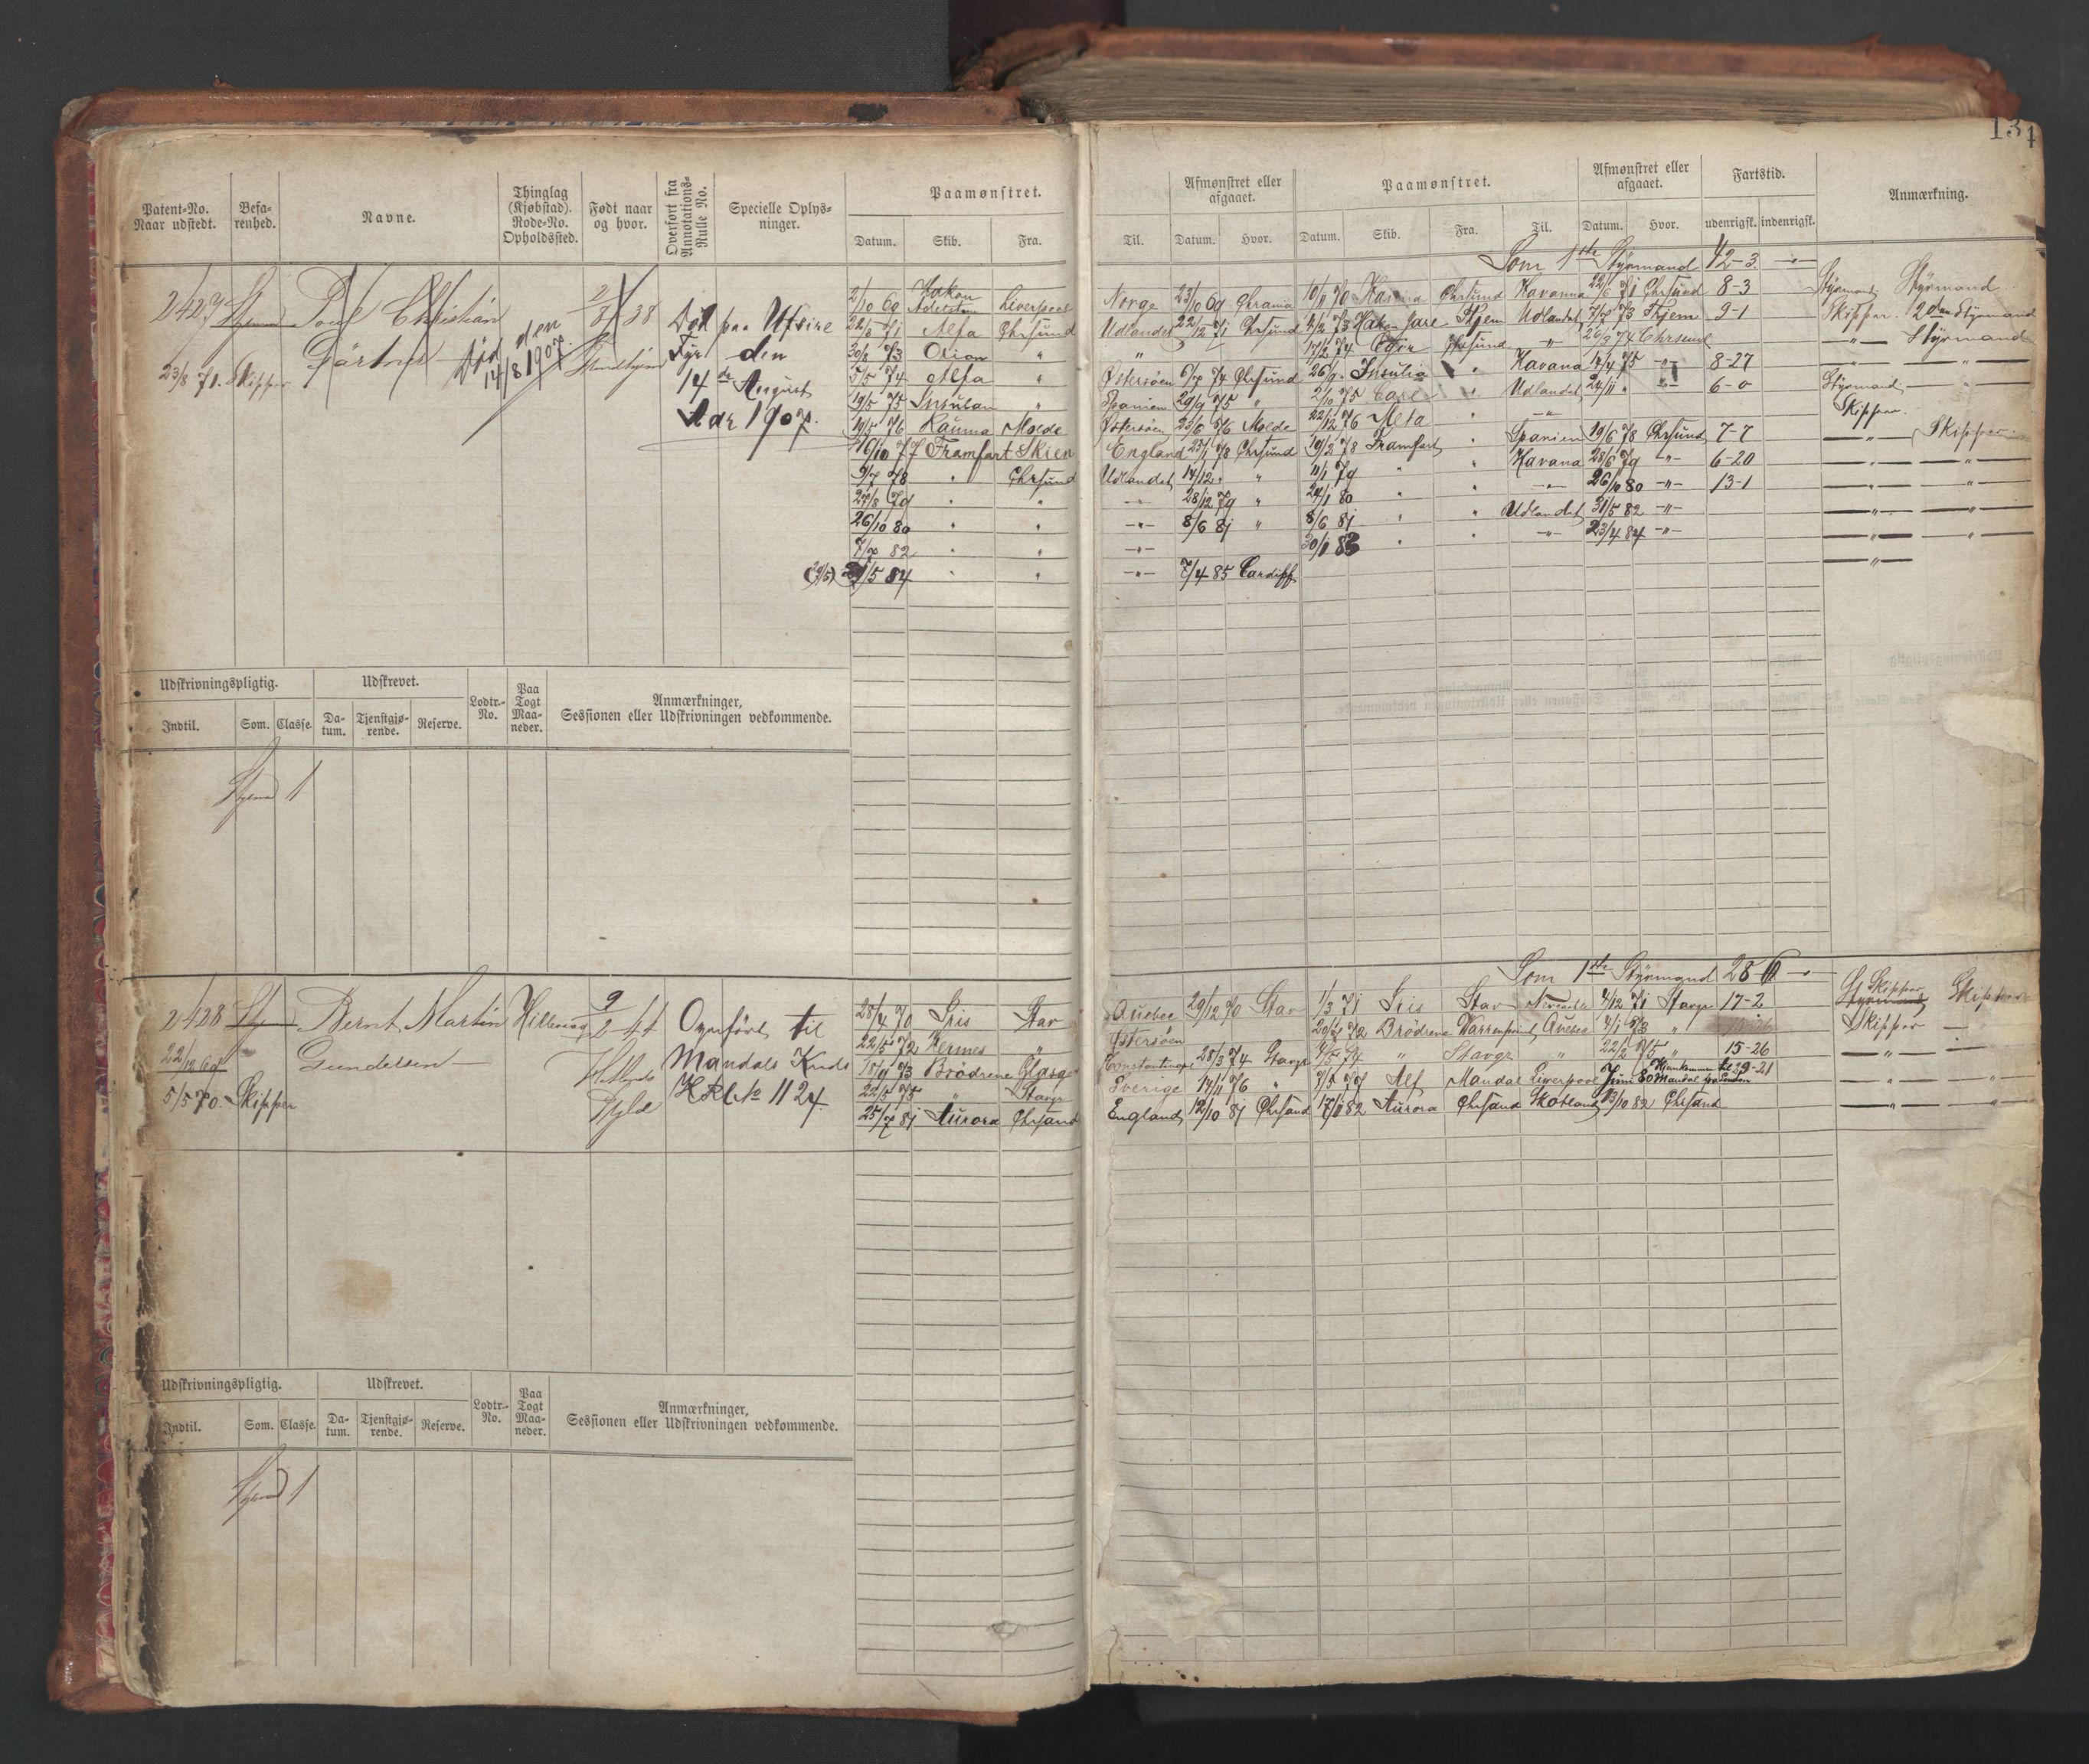 134
Patent-No. Naar udstedt.
Befa- renhed.
Navne.
Thinglag (Kjøbstad). Rode-No. Opholdssted.
Født naar og hvor.
Overført fra Annotations- Rulle No.
Specielle Oplys- ninger.
Paamønstret.
Datum. Skib. Fra.
Til.
Afmønstret eller afgaaet.
Datum. Hvor.
Paamønstret.
Datum. Skib. Fra. Til.
Afmønstret eller afgaaet.
Datum. Hvor.
Fartstid.
udenrigsk. indenrigsk.
Anmærkning.
Som 1ste Styrmand 42-3
2427
Christian
Gärtner
23/8 71. Skipper
Død den 14/8 1907.
2/8 38
Død paa Utsire
Fyr den
14de August
Aar 1907.
2/10 69 Hakon Adelsten Liverpool Norge 23/10 69 Chrania 10/11 70 Chrsund Havanna 22/6 71 Chrsund 8-3 Styrmand Styrmand
22/8 71 Alfa Chrsund Udlandet 22/12 71 Chrsund 4/2 73 Hakon Jarl Thjem Udlandet 73 Thjem 9-1 Skipper. 2den Styrmand
30/8 73 Orion " " 17/2 74 Egir -"- 26/9 74 Chrsund -"- Styrmand
5/5 74 Alfa " Østersøen 6/7 74 Chrsund 26/9 Insulia " Havana 14/4 75 -"- 8-27 -"- "
19/5 75 Insulan " Spanien 29/9 75 " 2/10 75 " Udlandet 24/11 " -"- 6-0 Styrmand -"-
19/5 76 Rauma Molde Østersøen 25/6 76 Molde 22/12 76 " -"- Skipper.
16/10 77 Framfart Skien England 23/1 78 Chrsund 19/2 78 Framfart " Spanien 19/6 78 Chrsund 7-7 -"- Skipper
9/7 78 " Chrsund Udlandet 14/12 " " 11/1 79 " " Havana 28/6 79 -"- 6-20 -"- -"-
27/8 79 " " -"- 28/12 79 " 24/1 80 " " -"- 26/10 80 -"- 13-1 -"- -"-
26/10 80 " " -"- 8/6 81 " 8/6 81 " " Udlandet 31/5 82 -"- -"- -"-
7/7 82 " " -"- 30/11 83 " " -"- 23/4 84 -"- -"- -"-
(29/5) 29/5 84 " " -"- 7/4 85 Cardiff -"-
Udskrivningspligtig.
Indtil. Som. Classe.
Udskrevet.
Da- tum. Tjenstgjø- rende. Reserve.
Lodtr.- No.
Paa Togt Maa- neder.
Anmærkninger, Sessionen eller Udskrivningen vedkommende.
1
Som 1ste Styrmand 28-6
2428 Bernt Martin
Gundersen
22/12 69
5/5 70. Skipper
9/2 44
Overført til
Mandals Kreds
HRl No 1124
28/4 70 Iris Stav Quebec 29/12 70 Stav 1/3 71 Iris Stav 4/12 71 Stavgr 17-2 Skipper Skipper
22/5 72 Hermes " Østersøen 72 Brödrene Quebec 4/1 73 " Skipper -
18/11 73 Brödrene Glasgo 28/3 74 Stavgr 4/5 74 " Stavgr " 22/2 75 " 15-26 -"- -
22/5 75 " Stavgr Sverige 14/11 76 " 9/5 77 Alf Mandal Liverpool Juni 80 Mandal fra London -"- "
25/7 81 Aurora Chrsand England 12/10 81 Chrsand 17/11 82 Aurora Chrsand Skotland 13/10 82 Chrsand -"- "
Udskrivningspligtig.
Indtil. Som. Classe.
Udskrevet.
Da- tum. Tjenstgjø- rende. Reserve.
Lodtr.- No.
Paa Togt Maa- neder.
Anmærkninger, Sessionen eller Udskrivningen vedkommende.
1